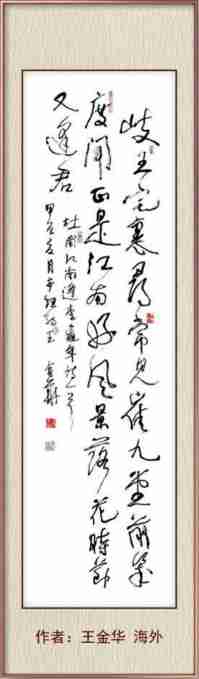 岐王宅裏尋常見崔九堂前幾
度聞正是江南好風景落花時節
又逢君
杜甫江南逢李龜年詩一首
金華
作者：王金华 海外